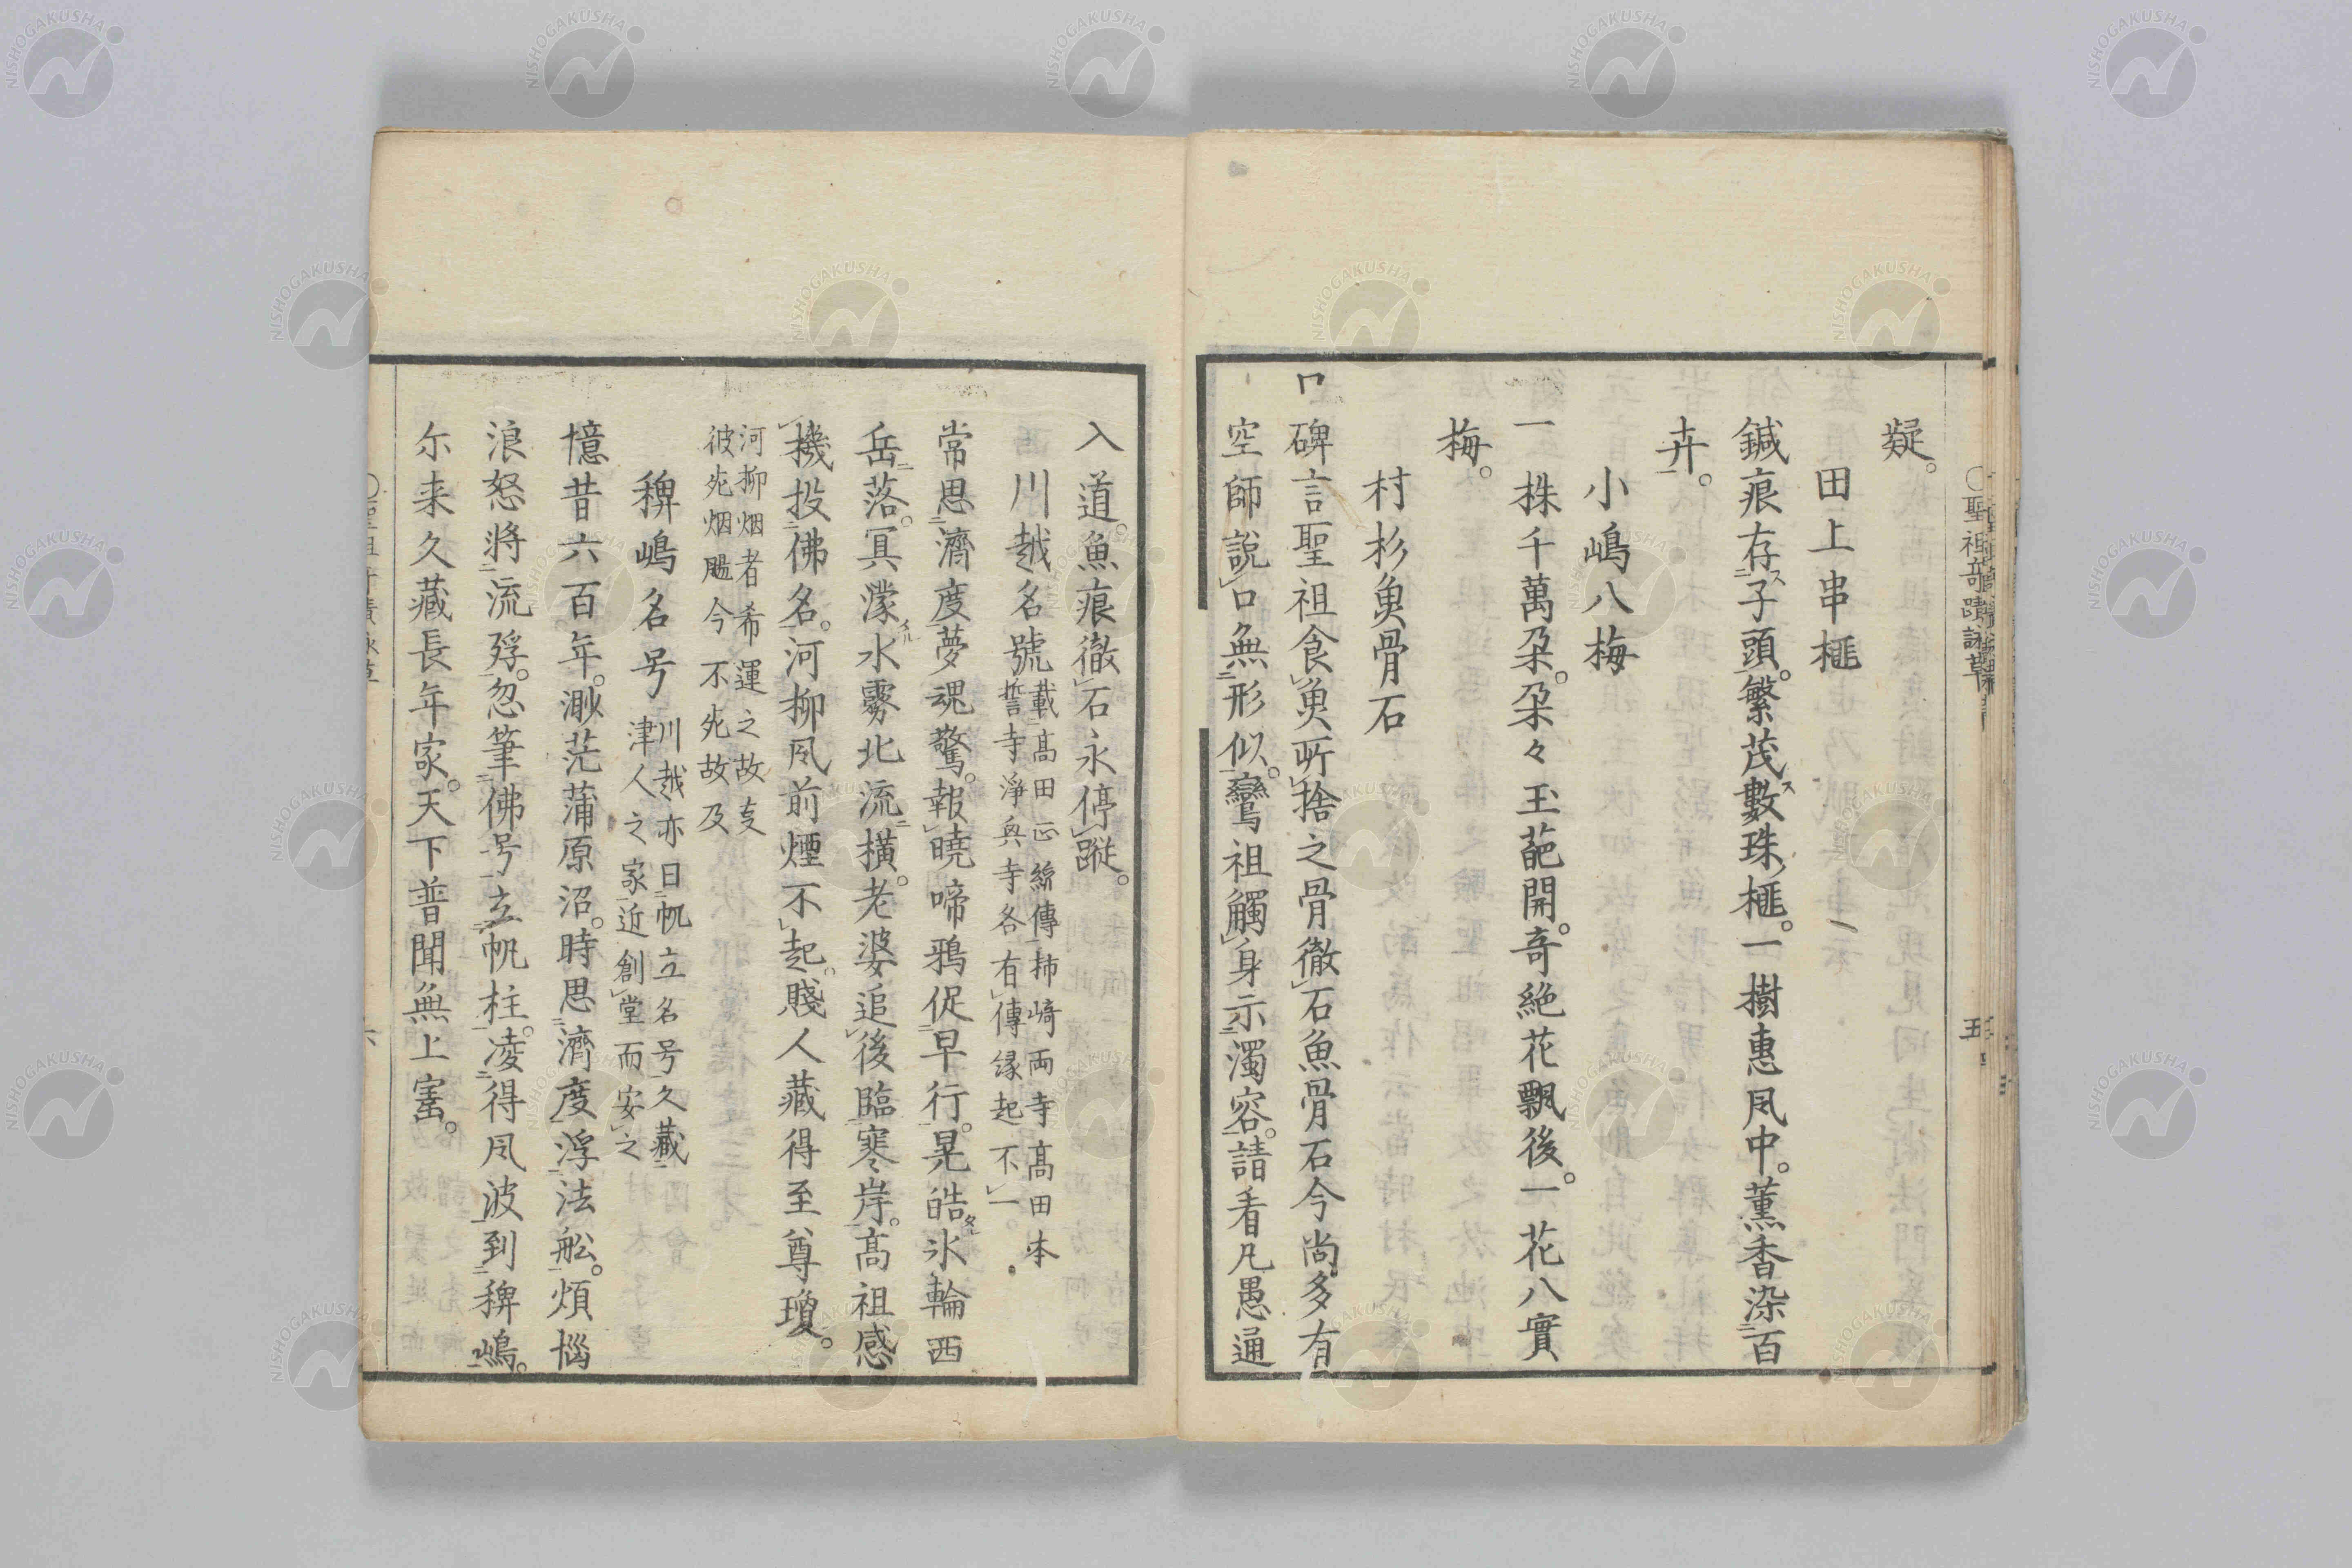 疑。
田上串榧
鍼痕存子頭。繁茂數珠榧。一樹惠凬中。薫香染百
卉。
小嶋八梅
一株千萬朶。朶々玉葩開。奇絶花飄後。一花八實
梅。
村杉魚骨石
碑言聖祖食魚所捨之骨徹石魚骨石今尚多有
空師說口無形似。鸞祖觸身示濁容。請看凡愚通
聖祖奇蹟詠草
五
入道。魚痕徹石永停蹤。
川越名號
載髙田正統傳柿崎両寺髙田本
誓寺淨興寺各有傳縁起不一
常思濟度夢魂驚。報曉啼鴉促早行。晃皓氷輪西
岳落。冥濛水霧北流横。老婆追後臨寒岸。髙祖感
機投佛名。河柳凬前煙不起。賤人藏得至尊瓊。
河柳烟者希運之故支
彼炛烟颺今不炛故及
稗嶋名号
川越亦曰帆立名号久藏
津人之家近創堂而安之
憶昔六百年。渺茫蒲原沼。時思濟度浮法舩。煩惱
浪怒將流殍。忽筆佛号立帆柱。凌得凬波到稗嶋。
尓来久藏長年家。天下普聞無上寚。